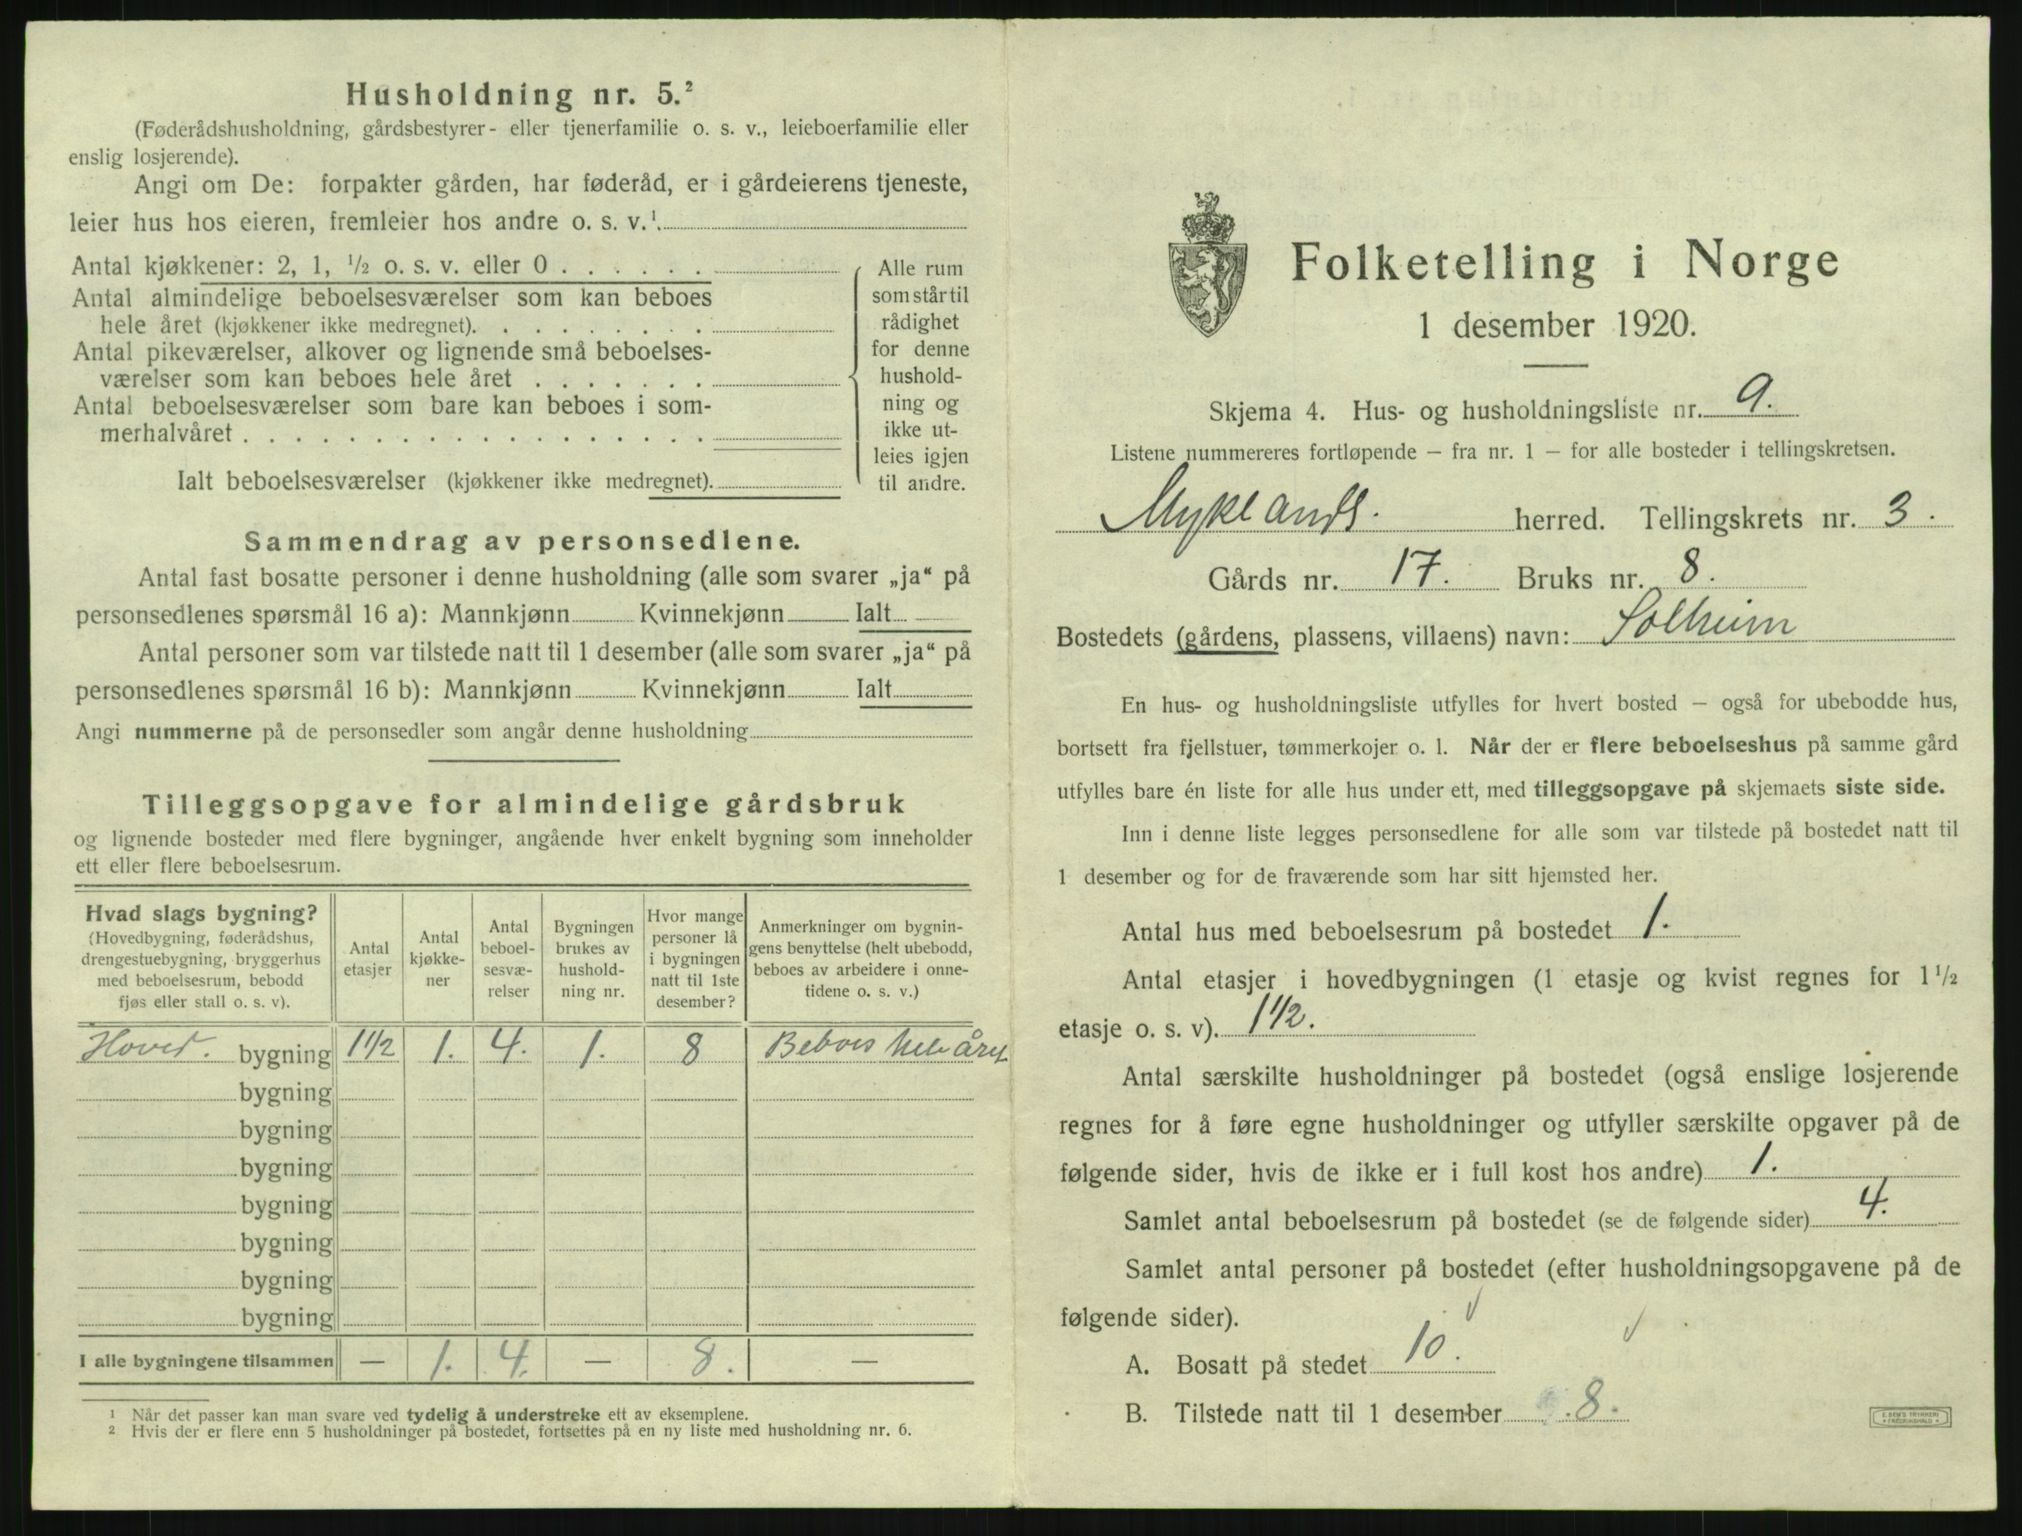 Husholdning nr. 5.²
(Føderådshusholdning, gårdsbestyrer- eller tjenerfamilie o. s. v., leieboerfamilie eller
enslig losjerende).
Angi om De: forpakter gården, har føderåd, er i gårdeierens tjeneste,
leier hus hos eieren, fremleier hos andre o. s. v.¹.
Antal kjøkkener: 2, 1, ½ o. s. v. eller 0 . . . . . .
Antal almindelige beboelsesværelser som kan beboes
hele året (kjøkkener ikke medregnet). . . . . . . . .
Antal pikeværelser, alkover og lignende små beboelses-
værelser som kan beboes hele året . . . . . . .
Antal beboelsesværelser som bare kan beboes i som-
merhalvåret . . . . . . . . . . . . . . . . . .
Ialt beboelsesværelser (kjøkkener ikke medregnet).
Alle rum
som står til
rådighet
for denne
hushold-
ning og
ikke ut-
leies igjen
til andre.
Sammendrag av personsedlene.
Antal fast bosatte personer i denne husholdning (alle som svarer „ja“ på
personsedlenes spørsmål 16 a): Mannkjønn Kvinnekjønn Ialt
Antal personer som var tilstede natt til 1 desember (alle som svarer „ja“ på
personsedlenes spørsmål 16 b): Mannkjønn Kvinnekjønn Ialt
Angi nummerne på de personsedler som angår denne husholdning
Tilleggsopgave for almindelige gårdsbruk
og lignende bosteder med flere bygninger, angående hver enkelt bygning som inneholder
ett eller flere beboelsesrum.
Hvad slags bygning?
(Hovedbygning, føderådshus,
drengestuebygning, bryggerhus
med beboelsesrum, bebodd
fjøs eller stall o. s. v).
Antal
etasjer
Antal
kjøkke-
ner
Antal
beboel-
sesvæ-
relser
Bygningen
brukes av
hushold-
ning nr.
Hvor mange
personer lå
i bygningen
natt til 1ste
desember?
Anmerkninger om bygnin-
gens benyttelse (helt ubebodd,
beboes av arbeidere i onne-
tidene o. s. v.)
Hoved. bygning 1½ 1. 4. 1. 8 Beboes hele året
bygning
bygning
bygning
bygning
bygning
bygning
bygning
I alle bygningene tilsammen — 1. 4. — 8. —
¹ Når det passer kan man svare ved tydelig å understreke ett av eksemplene.
² Hvis der er flere enn 5 husholdninger på bostedet, fortsettes på en ny liste med husholdning nr. 6.
Folketelling i Norge
1 desember 1920.
Skjema 4. Hus- og husholdningsliste nr. 9.
Listene nummereres fortløpende – fra nr. 1 – for alle bosteder i tellingskretsen.
Myklands. herred. Tellingskrets nr. 3.
Gårds nr. 17. Bruks nr. 8.
Bostedets (gårdens, plassens, villaens) navn: Solheim
En hus- og husholdningsliste utfylles for hvert bosted – også for ubebodde hus,
bortsett fra fjellstuer, tømmerkojer o. l. Når der er flere beboelseshus på samme gård
utfylles bare én liste for alle hus under ett, med tilleggsopgave på skjemaets siste side.
Inn i denne liste legges personsedlene for alle som var tilstede på bostedet natt til
1 desember og for de fraværende som har sitt hjemsted her.
Antal hus med beboelsesrum på bostedet 1.
Antal etasjer i hovedbygningen (1 etasje og kvist regnes for 1½
etasje o. s. v). 1½.
Antal særskilte husholdninger på bostedet (også enslige losjerende
regnes for å føre egne husholdninger og utfyller særskilte opgaver på de
følgende sider, hvis de ikke er i full kost hos andre) 1.
Samlet antal beboelsesrum på bostedet (se de følgende sider) 4.
Samlet antal personer på bostedet (efter husholdningsopgavene på de
følgende sider).
A. Bosatt på stedet 10.
B. Tilstede natt til 1 desember 8.
E. SEM'S TRYKKERI
FREDRIKSHALD